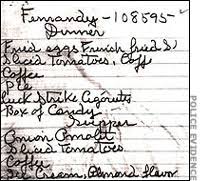 Fernandez - 108595 -
Dinner
Fried eggs French fried
Sliced Tomatoes, Coff
Coffee
Pie
Luck Strike Cigarets
Box of Candy
Supper
Onion Omolet
Sliced Tomatoes
Coffee
Ice Cream, Almond flavor
POLICE EVIDENCE